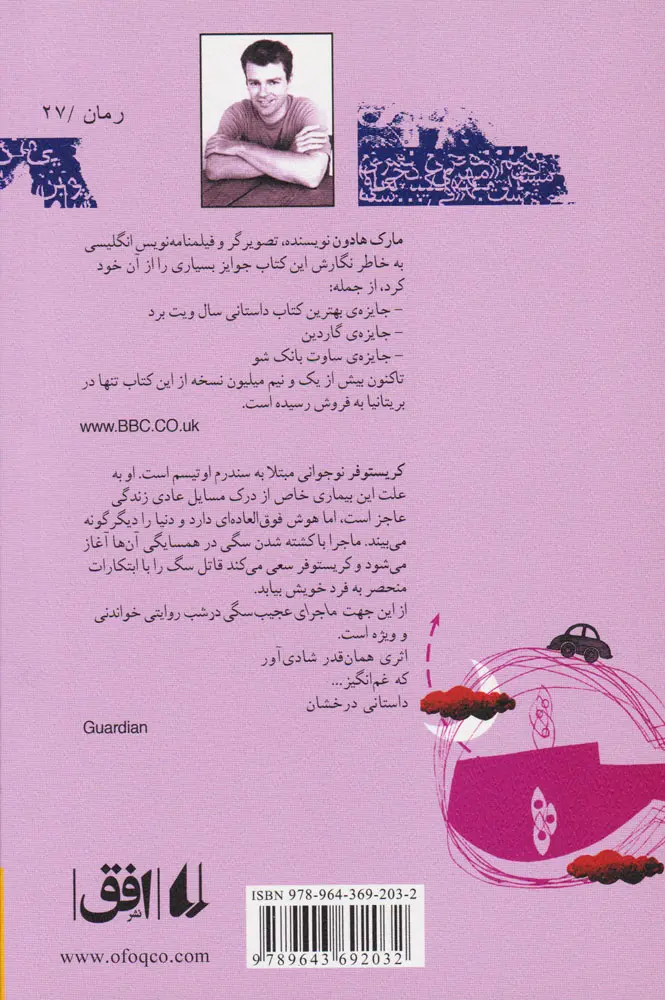 رمان / ۲۷
مارک هادون نویسنده، تصویرگر و فیلمنامه‌نویس انگلیسی
به خاطر نگارش این کتاب جوایز بسیاری را از آن خود
کرد، از جمله:
- جایزه‌ی بهترین کتاب داستانی سال ویت برد
- جایزه‌ی گاردین
- جایزه‌ی ساوت بانک شو
تاکنون بیش از یک و نیم میلیون نسخه از این کتاب تنها در
بریتانیا به فروش رسیده است.
www.BBC.CO.uk
کریستوفر نوجوانی مبتلا به سندرم اوتیسم است. او به
علت این بیماری خاص از درک مسایل عادی زندگی
عاجز است، اما هوش فوق‌العاده‌ای دارد و دنیا را دیگرگونه
می‌بیند. ماجرا با کشته شدن سگی در همسایگی آن‌ها آغاز
می‌شود و کریستوفر سعی می‌کند قاتل سگ را با ابتکارات
منحصر به فرد خویش بیابد.
از این جهت ماجرای عجیب سگی در شب روایتی خواندنی
و ویژه است.
اثری همان‌قدر شادی‌آور
که غم‌انگیز...
داستانی درخشان
Guardian
نشر افق
www.ofoqco.com
ISBN 978-964-369-203-2
9 789643 692032